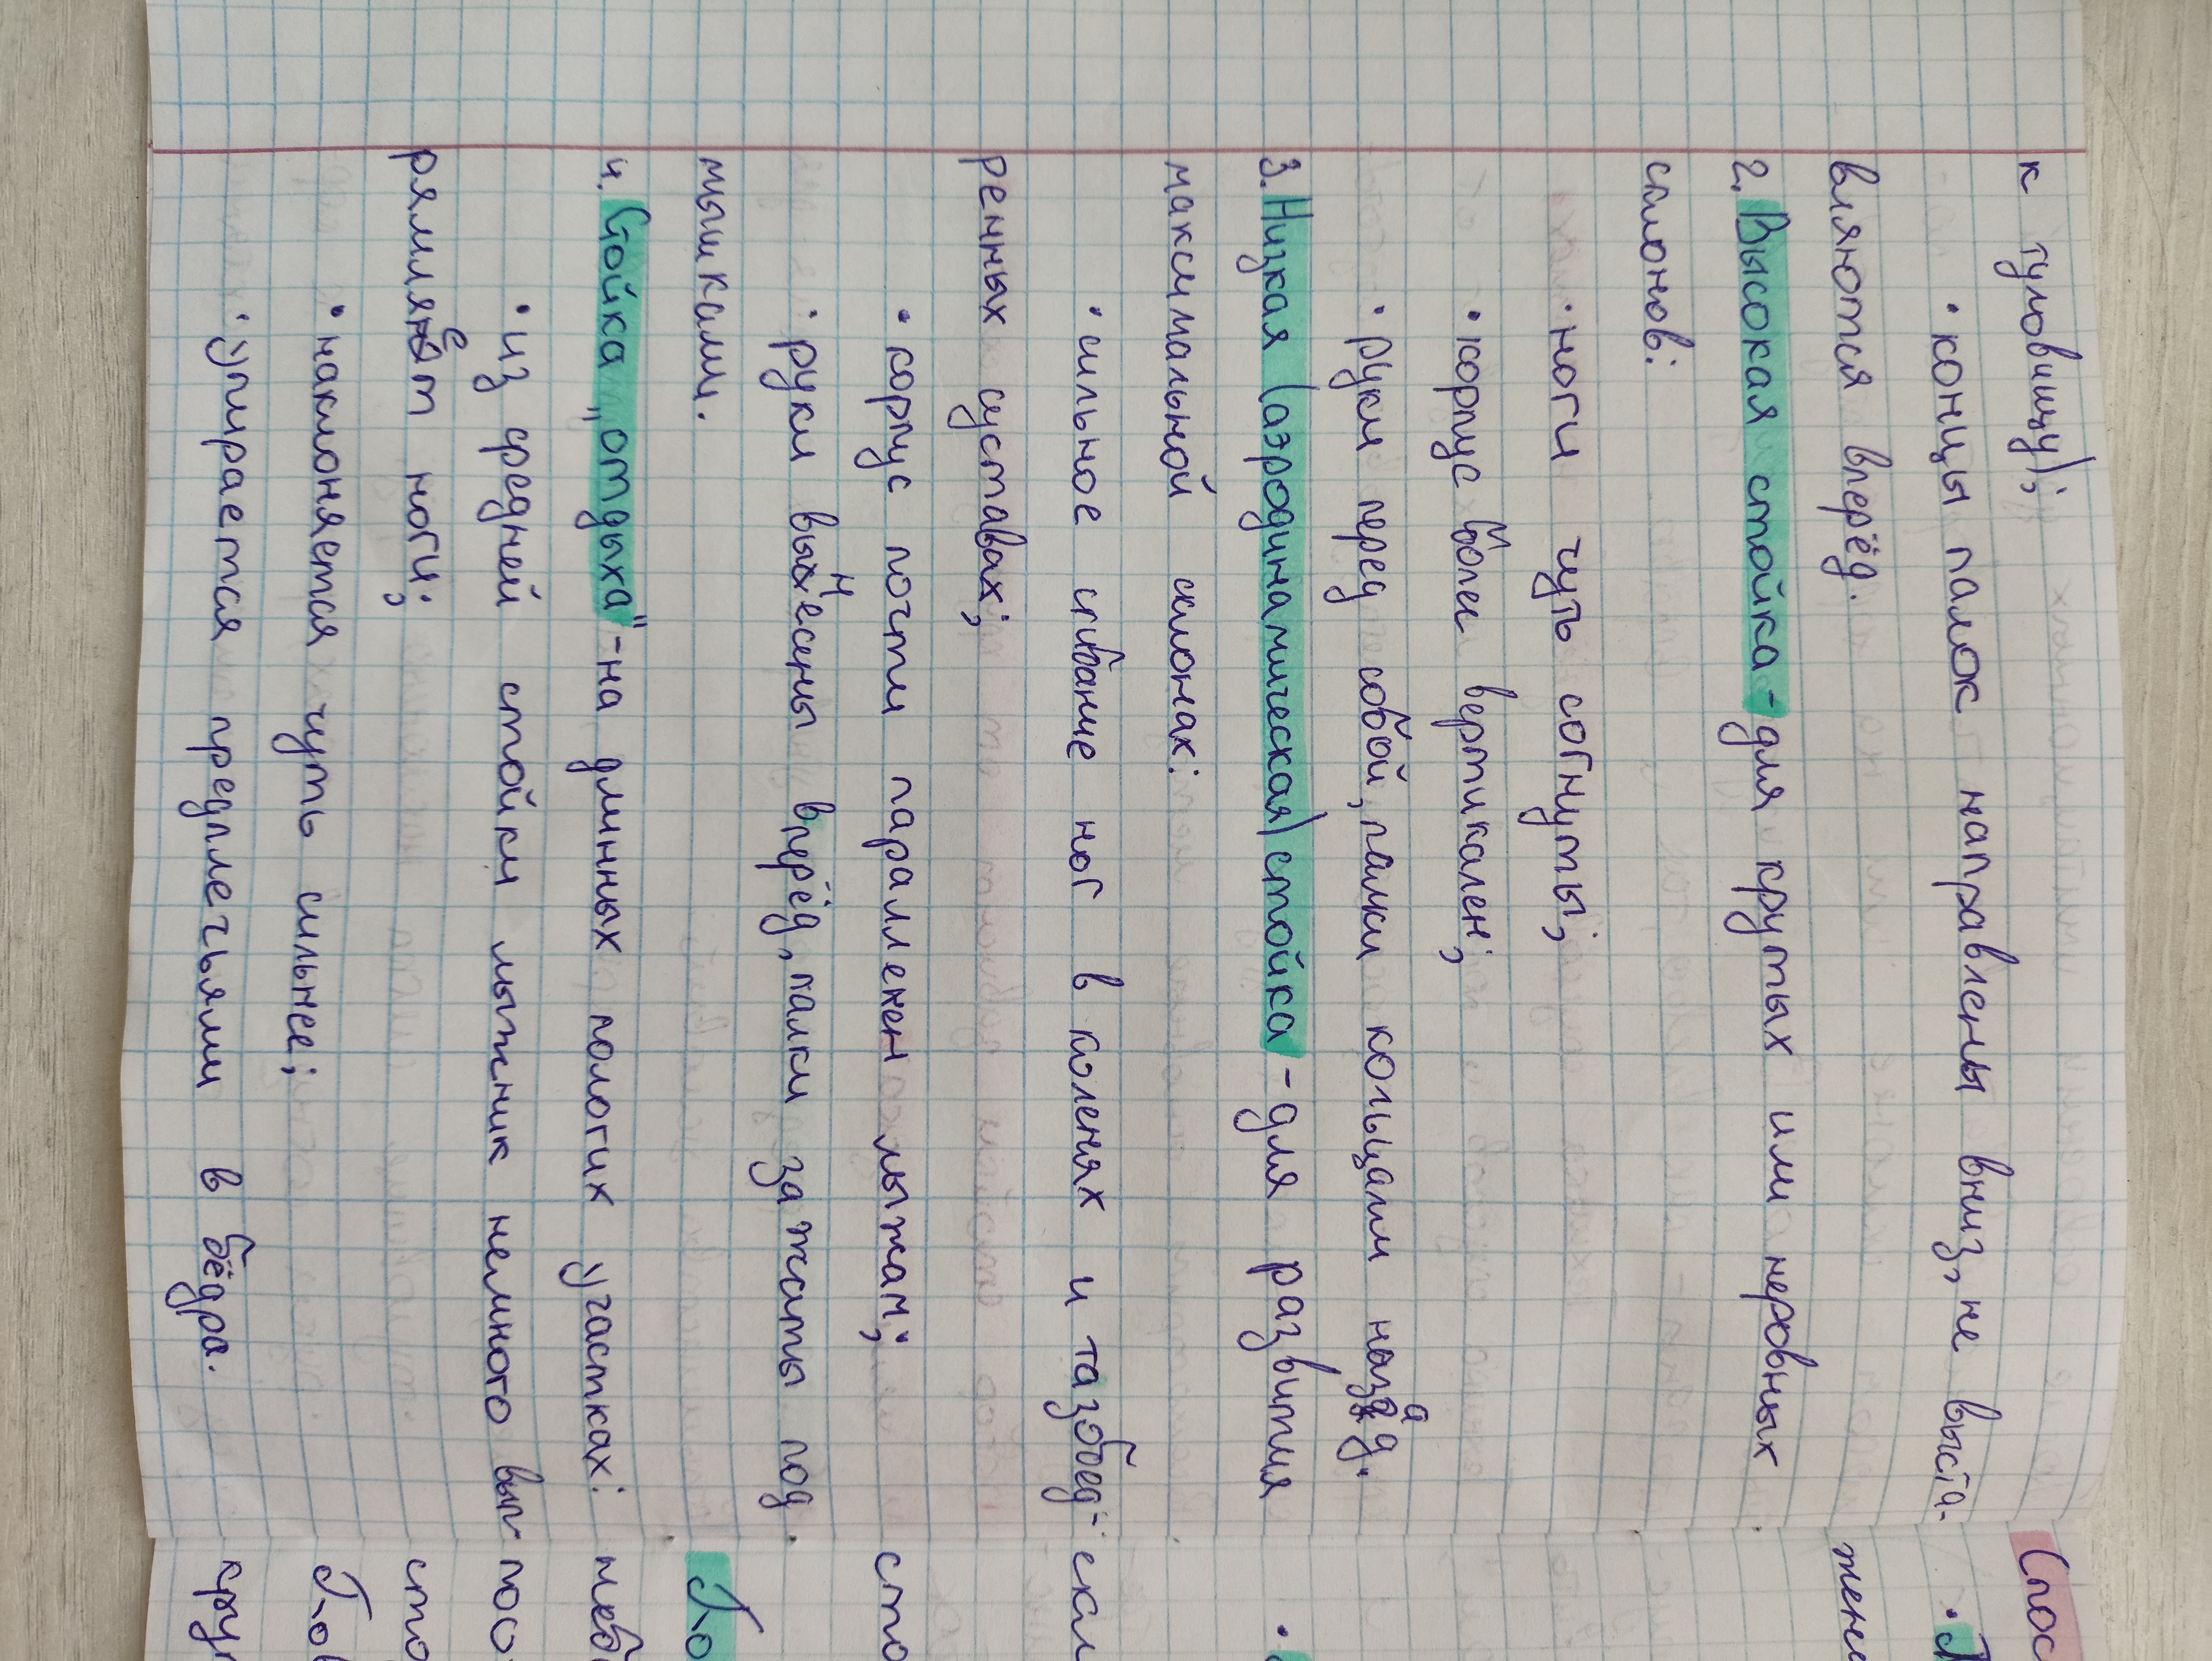 к туловищу);
• концы палок направлены вниз, не выста-
вляются вперёд.
2. Высокая стойка - для крутых или неровных
склонов:
• ноги чуть согнуты;
• корпус более вертикален;
• руки перед собой, палки кольцами назад.
3. Низкая (аэродинамическая) стойка - для развития
максимальной склонах:
• сильное сгибание ног в коленях и тазобед-
ренных суставах;
• корпус почти параллелен лыжам;
• руки вынесены вперёд, палки зажаты под
мышками.
4. Стойка "отдыха" - на длинных пологих участках:
• из средней стойки лыжник немного вып-
рямляет ноги;
• наклоняется чуть сильнее;
• упирается предплечьями в бёдра.